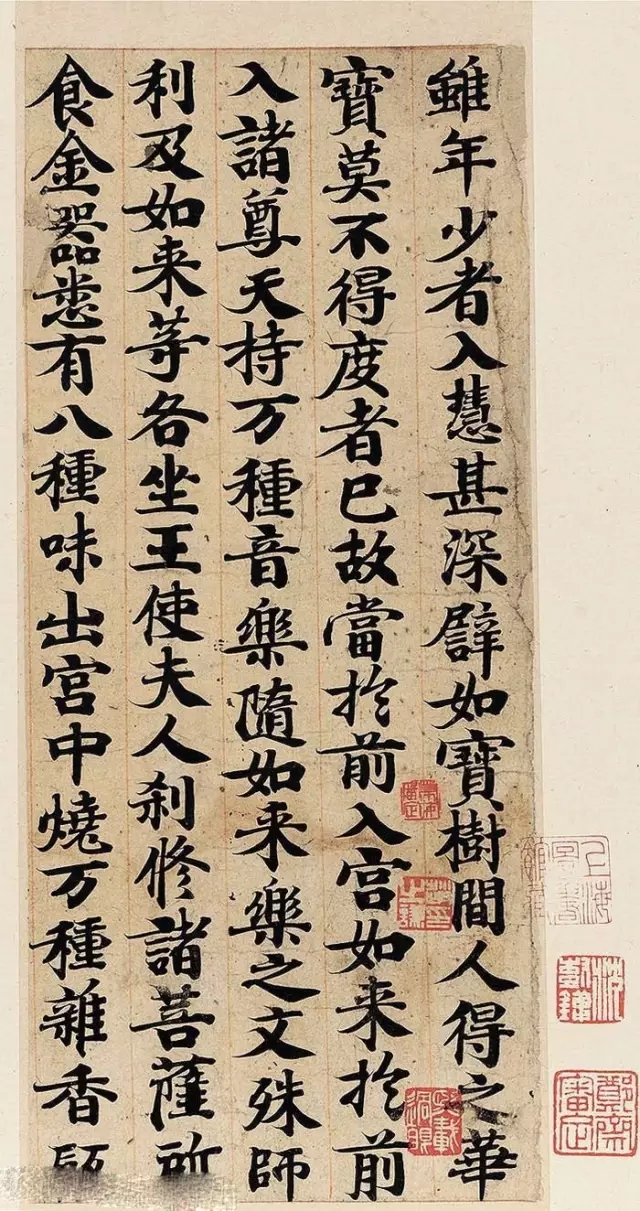 雖年少者入慧甚深譬如寶樹間人得之華
寶莫不得度者已故當扵前入宮如来扵前
入諸尊天持万種音樂隨如来樂之文殊師
利及如来等各坐王使夫人刹修諸菩薩所
食金器悉有八種味出宮中燒万種雜香
上海
圖書
館藏